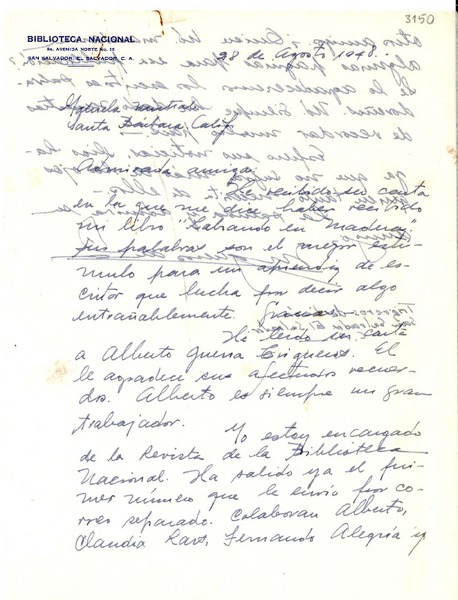 3150
BIBLIOTECA NACIONAL
8A. AVENIDA NORTE No. 16
SAN SALVADOR, EL SALVADOR, C. A.
28 de Agosto 1948.
Gabriela Mistral
Santa Bárbara, Calif.
Admirada amiga:
He recibido su carta
en la que me dice haber recibido
mi libro "Labrando en madera".
Sus palabras son el mejor estí-
mulo para un aprendiz de es-
critor que lucha por decir algo
entrañablemente. Gracias.
He leído su carta
a Alberto Guerra Trigueros. El
le agradece sus afectuosos recuer-
dos. Alberto es siempre un gran
trabajador.
Yo estoy encargado
de la Revista de la Biblioteca
Nacional. Ha salido ya el pri-
mer número que le envío por co-
rreo separado. Colaboran Alberto,
Claudia Lars, Fernando Alegría y